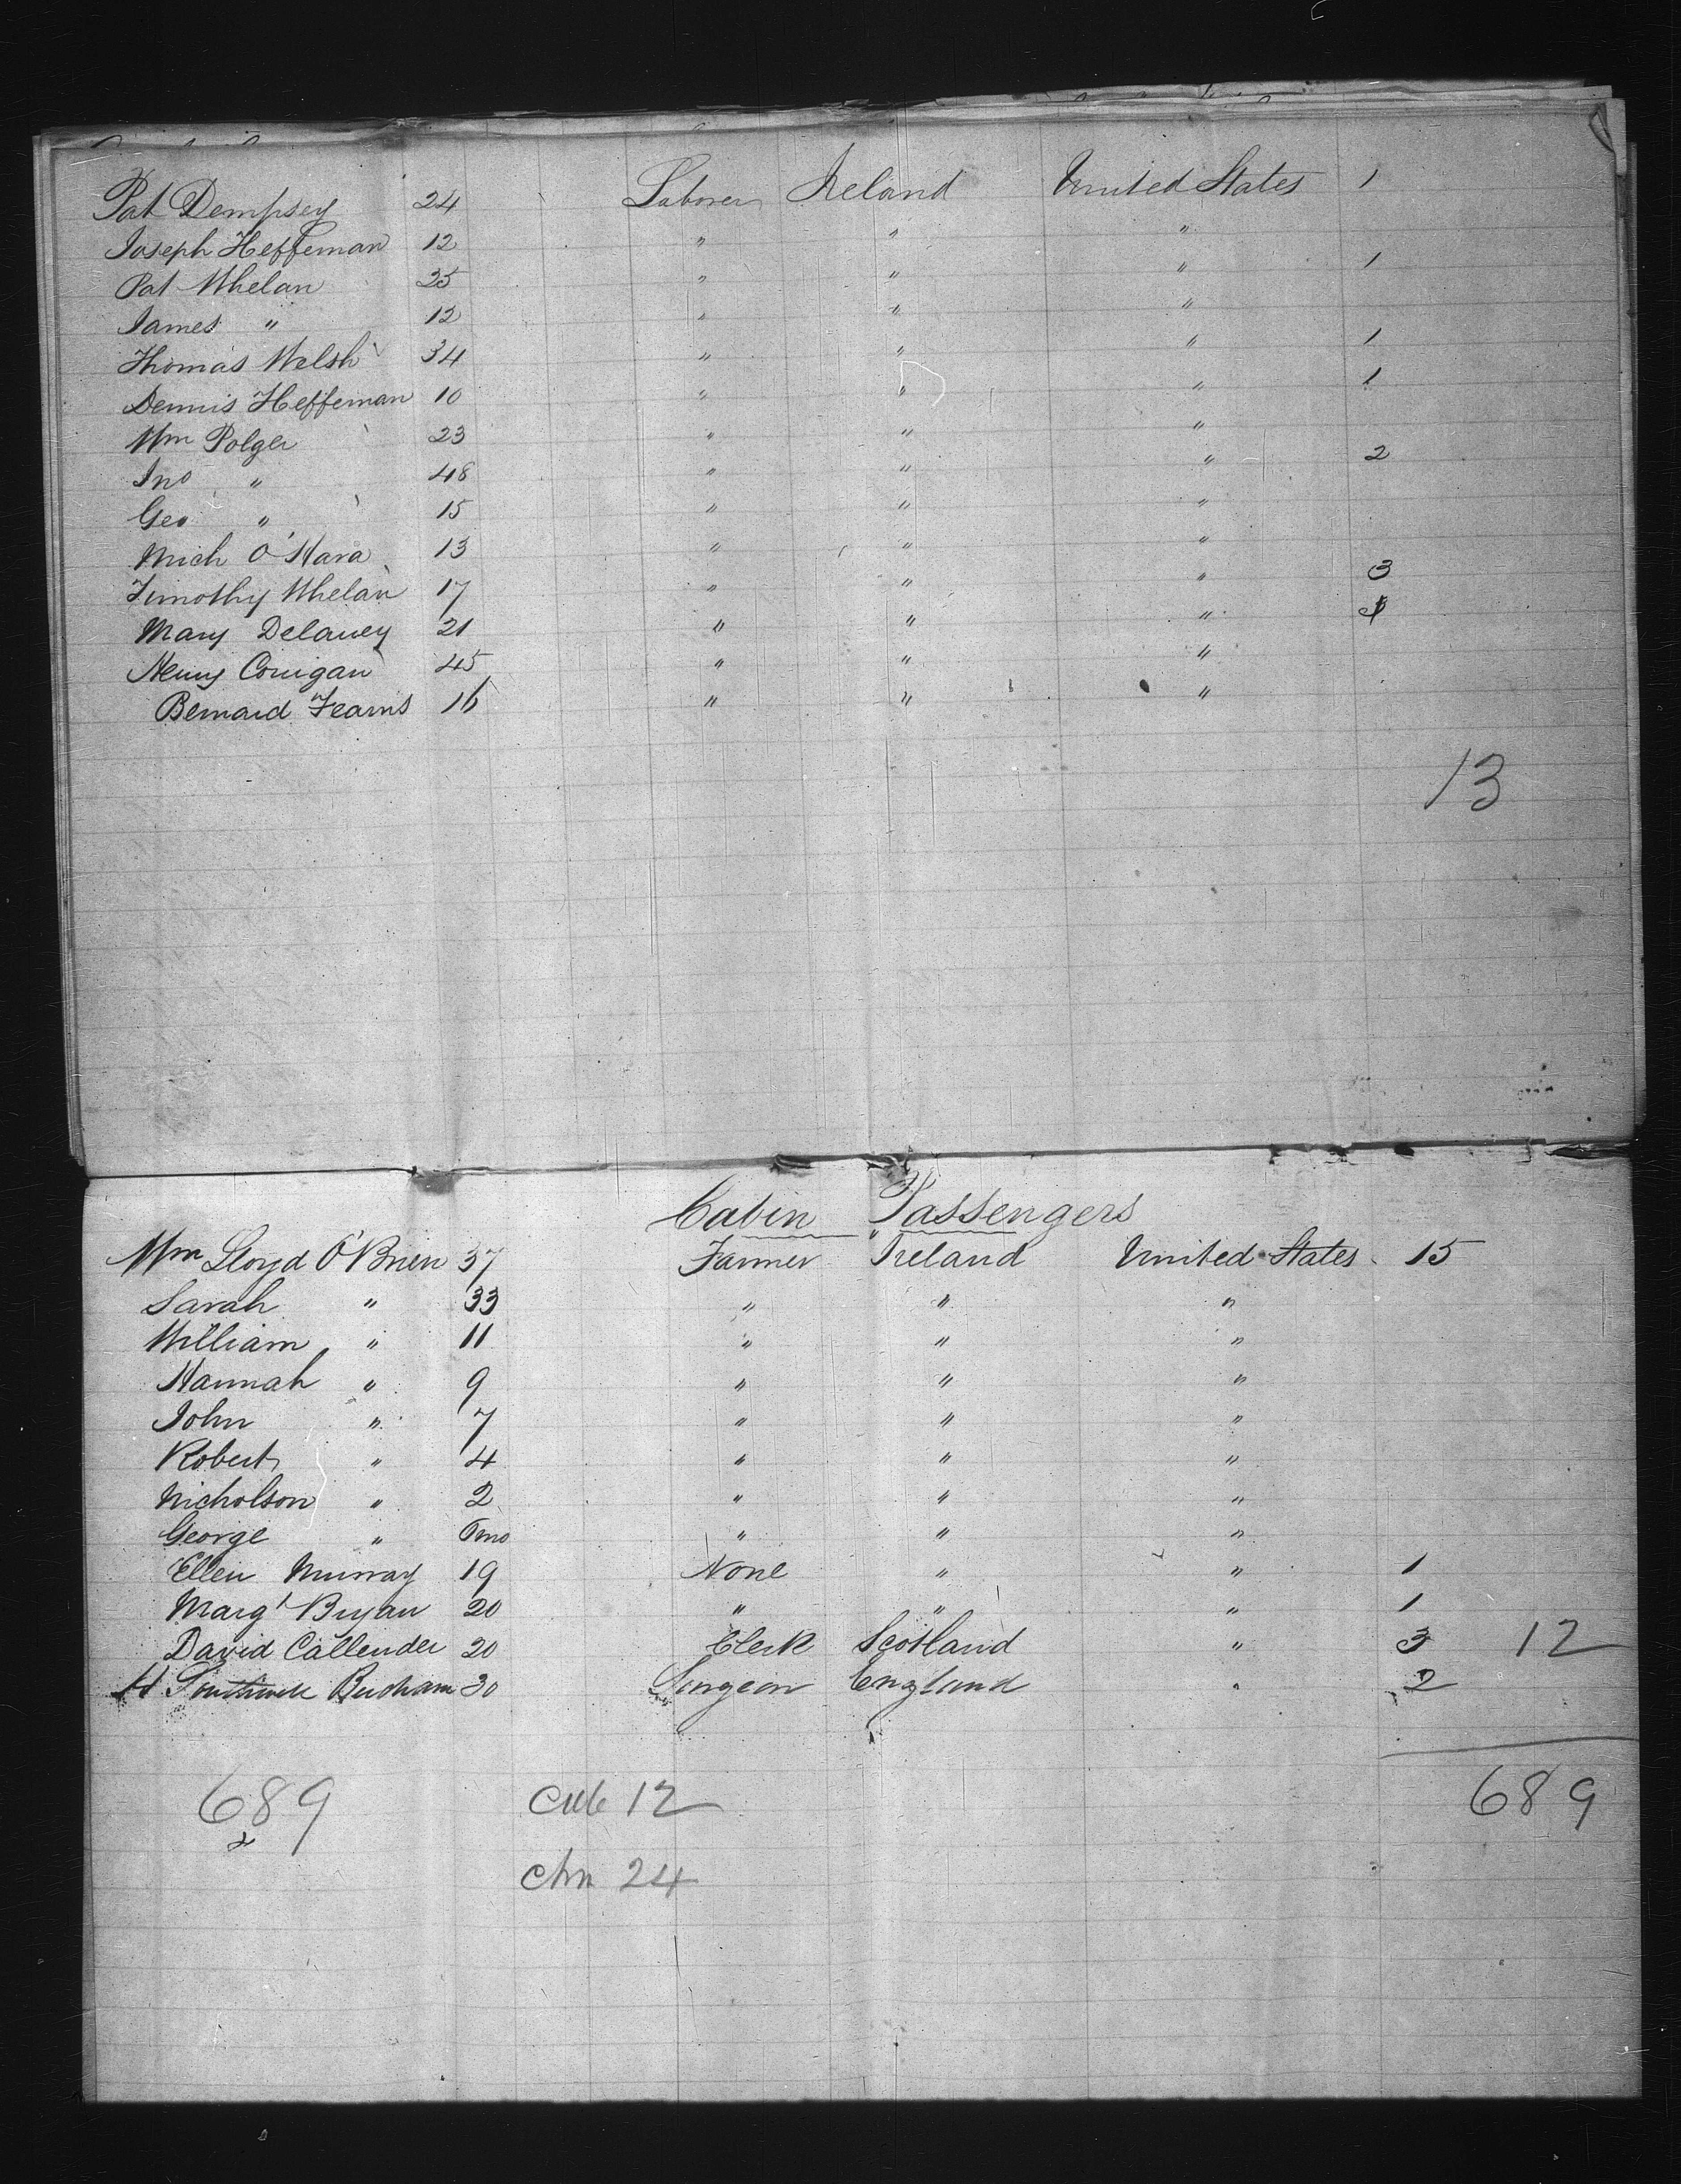 Pat Dempsey 24 Laborer Ireland United States 1
Joseph Heffernan 12 " " "
Pat Whelan 25 " " " 1
James " 12 " " "
Thomas Welsh 34 " " " 1
Dennis Heffernan 10 " " " 1
Wm Polger 23 " " "
Jno " 48 " " " 2
Geo " 15 " " "
Mich O'Hara 13 " " "
Timothy Whelan 17 " " " 3
Mary Delaney 21 " " "
Henry Corrigan 45 " " "
Bernard Fearns 16 " " "
13
Cabin Passengers
Wm Lloyd O'Brien 37 Farmer Ireland United States 15
Sarah " 33 " " "
William " 11 " " "
Hannah " 9 " " "
John " 7 " " "
Robert " 4 " " "
Nicholson " 2 " " "
George " 6mo " " "
Ellen Murray 19 None " " 1
Margt Bryan 20 " " " 1
David Callender 20 Clerk Scotland " 3 12
H 30 Surgeon England " 2
689 Cab 12 689
Chn 24